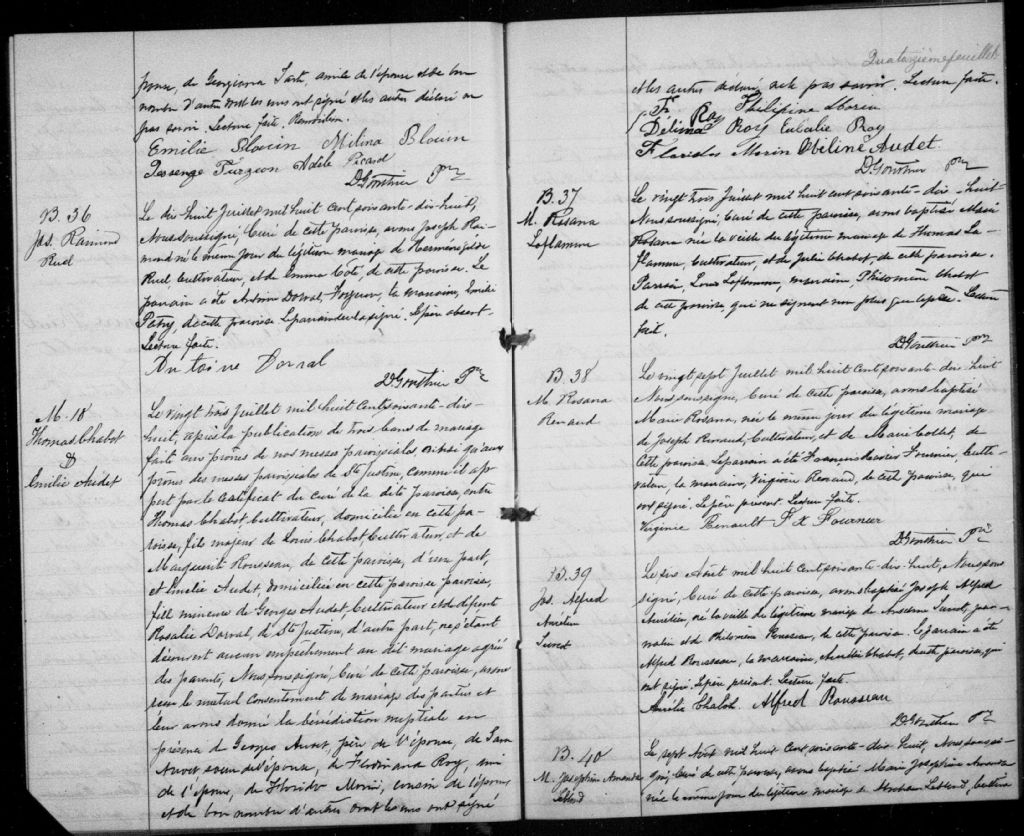 pour, de Georgiana amie de l'épouse et de bon
nombre d'autres dont les uns ont signé et les autres déclaré ne
pas savoir. Lecture faite.
Emilie Blouin Mélina Blouin
Turgeon Adèle Picard
D. Gonthier Ptre
B. 36
Jos. Raimond
Ruel
Le dix huit Juillet mil huit cent soixante-dix-huit,
Nous soussigné, Curé de cette paroisse, avons Joseph Rai-
mond né le même jour du légitime mariage de Herménégilde
Ruel Cultivateur, et de Emma Coté, de cette paroisse. Le
parrain a été Antoine Dorval, la marraine, Emilie
Patry, de cette paroisse. Le parrain seul a signé. Le père absent.
Lecture faite.
Antoine Dorval
D. Gonthier Ptre
M. 18
Thomas Chabot
&
Emilie Audet
Le vingt trois Juillet mil huit cent soixante-dix-
huit, après la publication de trois bans de mariage
fait aux prônes de nos messes paroissiales, ainsi qu'aux
prônes des messes paroissiales de Ste Justine, comme il ap-
pert par le certificat du curé de la dite paroisse, entre
Thomas Chabot, Cultivateur, domicilié en cette pa-
roisse, fils majeur de Louis Chabot, Cultivateur, et de
Marguerite Rousseau, de cette paroisse, d'une part,
et Emélie Audet, domiciliée en cette paroisse paroisse,
fille mineure de Georges Audet, Cultivateur et de défunte
Rosalie Dorval, de Ste Justine, d'autre part, ne s'étant
découvert aucun empêchement au dit mariage agréé
des parents, Nous soussigné, Curé de cette paroisse, avons
reçu le mutuel consentement de mariage des parties et
leur avons donné la bénédiction nuptiale en
présence de Georges Audet, père de l'épouse, de Sara
Audet soeur de l'épouse, de Ferdinand Roy, ami
de l'époux, de Florido Morin, cousin de l'épouse,
et de bon nombre d'autres dont les uns ont signé
Quatorzième feuillet
et les autres déclaré ne pas savoir. Lecture faite.
Fr. Roy Philipine Morin
Délima Roy Eulalie Roy
Floridas Morin Obiline Audet.
D. Gonthier Ptre
B. 37
M. Rosana
Laflamme
Le vingt trois Juillet mil huit cent soixante-dix-huit
Nous soussigné, Curé de cette paroisse, avons baptisé Marie
Rosana née la veille du légitime mariage de Thomas La-
flamme, Cultivateur, et de Julie Chabot, de cette paroisse.
Parrain, Louis Laflamme, marraine, Philomène Chabot
de cette paroisse, qui ne signent non plus que le père. Lecture
fait.
D. Gonthier Ptre
B. 38
M. Rosana
Renaud
Le vingt sept Juillet mil huit cent soixante-dix-huit
Nous soussigné, Curé de cette paroisse, avons baptisé
Marie Rosana, née le même jour du légitime mariage
de Joseph Renaud, Cultivateur, et de Marie Collet, de
cette paroisse. Le parrain a été François Xavier Fournier, Culti-
vateur, la marraine, Virginie Renaud, de cette paroisse, qui
ont signé. Le père présent. Lecture faite.
Virginie Renault F. X. Fournier
D. Gonthier Ptre
B. 39
Jos. Alfred
Aurélien
Le six Août mil huit cent soixante-dix-huit, Nous sous-
signé, Curé de cette paroisse, avons baptisé Joseph Alfred
Aurélien, né la veille du légitime mariage de Anselme jour-
nalier et de Philomène Rousseau, de cette paroisse. Le parrain a été
Alfred Rousseau, la marraine, Aurélie Chabot, de cette paroisse, qui
ont signé. Le père présent. Lecture faite.
Aurélie Chabot. Alfred Rousseau
D. Gonthier Ptre
B. 40
M. Josephine Amanda
Leblond
Le sept Août mil huit cent soixante-dix-huit, Nous soussi-
gné, Curé de cette paroisse, avons baptisé Marie Josephine Amanda
née le même jour du légitime mariage de Leblond, Cultiva